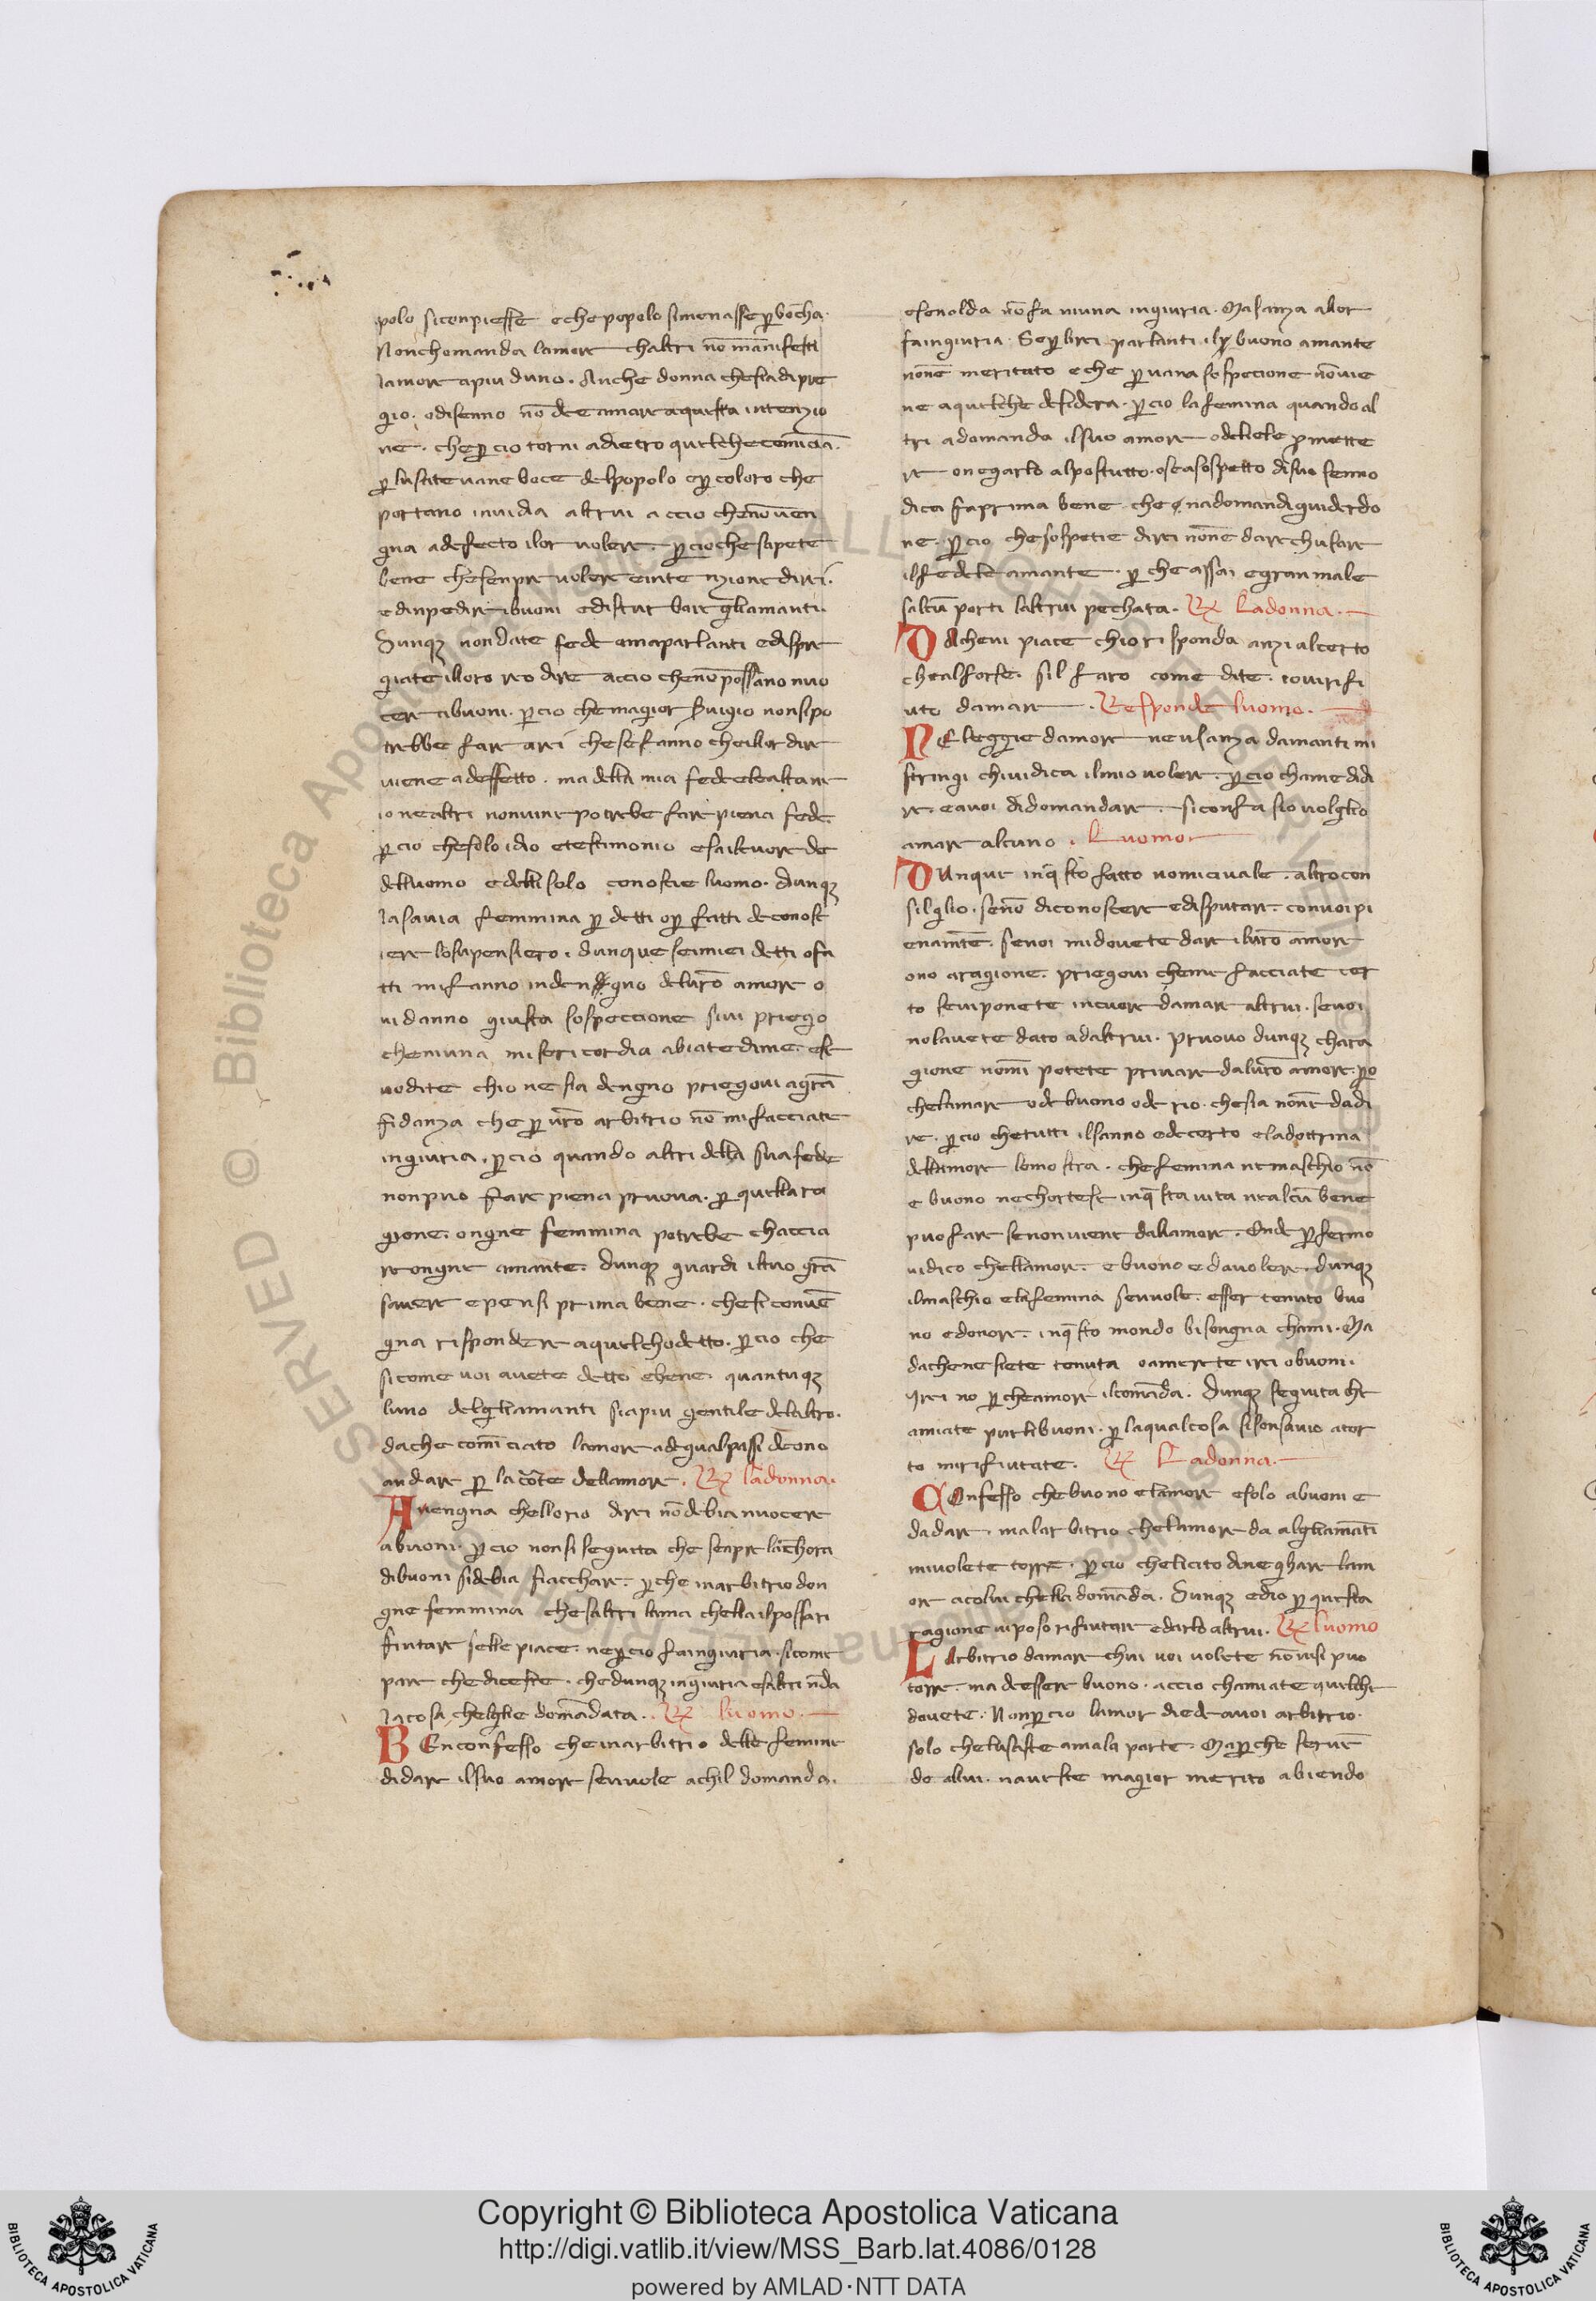 polo siconpiesse echepopolo simenasse p̲ boc̃ha.
Nonchomanda lamore chaltri nō manifesti
lamore apiu duno. Anche donna chesia dipre
gio. odisenno nō dee amare aquesta intenzio
ne. chep̲ cio torni adietro quelchecomīciā.
p̲ lusate uane boce delpopolo ep̲ coloro che
portano inuidia altrui accio chenō uen
gna adefecto ilor uolere. p̲ cioche sapete
bene chesenpre uolere einte nzione direi.
edinpedire ibuoni edistur bare gliamanti.
Dunqȝ nondate fede amaparlanti edispre
giate illoro reo dire accio chenō possano nuo
cere abuoni. p̲ cio chemagior seruigio nonsipo
trebbe fare arei chesefanno cheillor dire
uiene adeffetto. ma della mia fede elealtare
io nealtri nonuine potrebe fare piena fede.
p̲ cio chesolo idio etestimonio esailcuore de
delluomo edelli solo conoscie luomo. dunqȝ
lasauia femmina p̲ detti op̲ fatti deconosc
iere losuopensiero. dunque seimiei detti ofa
tti mifanno indengno delur̄o amore o
uidanno giusta sospeccione siui priego
cheniuna misericordia abiatedime. ese
uedite chio nesia dengno priegoui agrā
fidanza che p̲ ur̄o arbitrio nō mifacciate
ingiuria. p̲ cio quando altri della suafede
nonpuo fare piena pruoua. p̲ quella ra
gione. ongne femmina potrebe chaccia
re ongne amante. dunqȝ guardi iluo grā
sauere epensi prima bene. chesiconuē
gna rispondere aquelchodetto. p̲ cio che
sicome uoi auete detto ebene. quantuqȝ
luno degliamanti siapiu gentile delaltro.
dache comīciato lamore adegualpassi deono
andare p̲ la corte dellamore. R̲x̲ ladonna.
Auengna chellorio dire nōdebia nuocere
abuoni. p̲ cio nonsi seguita che senpre lanchora
dibuoni sidebia fiacchare. p̲ che inarbitrio don
gne femmina chesaltri lama chella ilpossa ri
fiutare selle piace. nep̲ cio fa ingiuria. sicome
pare chediceste. chedunqȝ ingiuria esaltri nōda
lacosa chelglie domādata. R̲x̲ luomo.
Ben confesso cheinarbitrio delle femine
didare ilsuo amore seuuole achil domanda.
esenolda nōfa niuna ingiuria. Masanza alor
faingiuria. Sep̲ lirei parlanti ilp̲ buono amante
nonē meritato eche p̲ uana sospecione nōuie
ne aquelche desidera. p̲ cio lafemina quandoal
tri adomanda ilsuo amore odeliele p̲mette
re onegarlo alpostutto. oseasospetto disuo senno
dica saprima bene che nadomandi guiderdo
ne. p̲ cio chesospetie direi nonē darechusare
ilfedele amante. p̲ che assai egran male
salcū porti laltrui pechata. R̲x̲ Ladonna.
Dacheui piace chiorisponda anzi alcerto
chealforse. sil faro come dite. iouirifi
uto damare. Responde luomo.
Ne leggie damore neusanza damanti mi
stringi chiuidica ilmio uolere. p̲ cio chame didi
re. eauoi didomandare. siconfa sio uolglio
amare alcuno. Luomo
Dunque inq̄sto fatto nomiciuale. altrocon
silglio. senō diconoscere edisputare. conuoi pi
enamēte. seuoi midouete dare iluro amore
ono aragione. priegoui cheme facciate cer
to seuiponete incuore damare altrui. seuoi
nolauete dato adaltrui. pruouo dunqȝ chara
gione nomī potete priuare daluro amore. p̲o
chelamare ode buono ode rio. chesia nonē dadi
re. p̲ cio chetutti ilsanno edecerto eladottrina
dellamore lomostra. chefemina nemaschio nō
e buono nechortese inq̄sta uita nealcū bene
puofare senonuiene dallamore. Onde p̲ fermo
uidico chellamore. ebuono edauolere. dunqȝ
ilmaschio elafemina seuuole. esser tenuto buo
no edonore. inq̄sto mondo bisongna chami. Ma
dachene siete tenuta oamerete irei obuoni.
Irei no p̲ cheamore ilcomāda. Dunqȝ seguita che
amiate purlibuoni. p̲ laqualcosa sisonsauio ator
to mirifiutate. R̲x̲ Ladonna.
Confesso chebuono elamore esolo abuoni e
dadare. malarbitrio chelamore da algliamāti
miuolete torre. p̲ cio chelicito dineghare lam
ore acolui chella domāda. Dunqȝ edio p̲ questa
ragione uiposo rifiutare edarlo altrui. R̲x̲ luomo
Larbitrio damare chui uoi uolete nō uisi puo
torre. ma dessere buono. accio chamiate quelche
douete. Nonp̲ cio lamor diede auoi arbitrio.
solo chelasciaste amala parte. Map̲ che seruē
do allui. naueste magior merito abiendo
Copyright © Biblioteca Apostolica Vaticana
http://digi.vatlib.it/view/MSS_Barb.lat.4086/0128
powered by AMLAD·NTT DATA
BIBLIOTECA APOSTOLICA VATICANA
BIBLIOTECA APOSTOLICA VATICANA